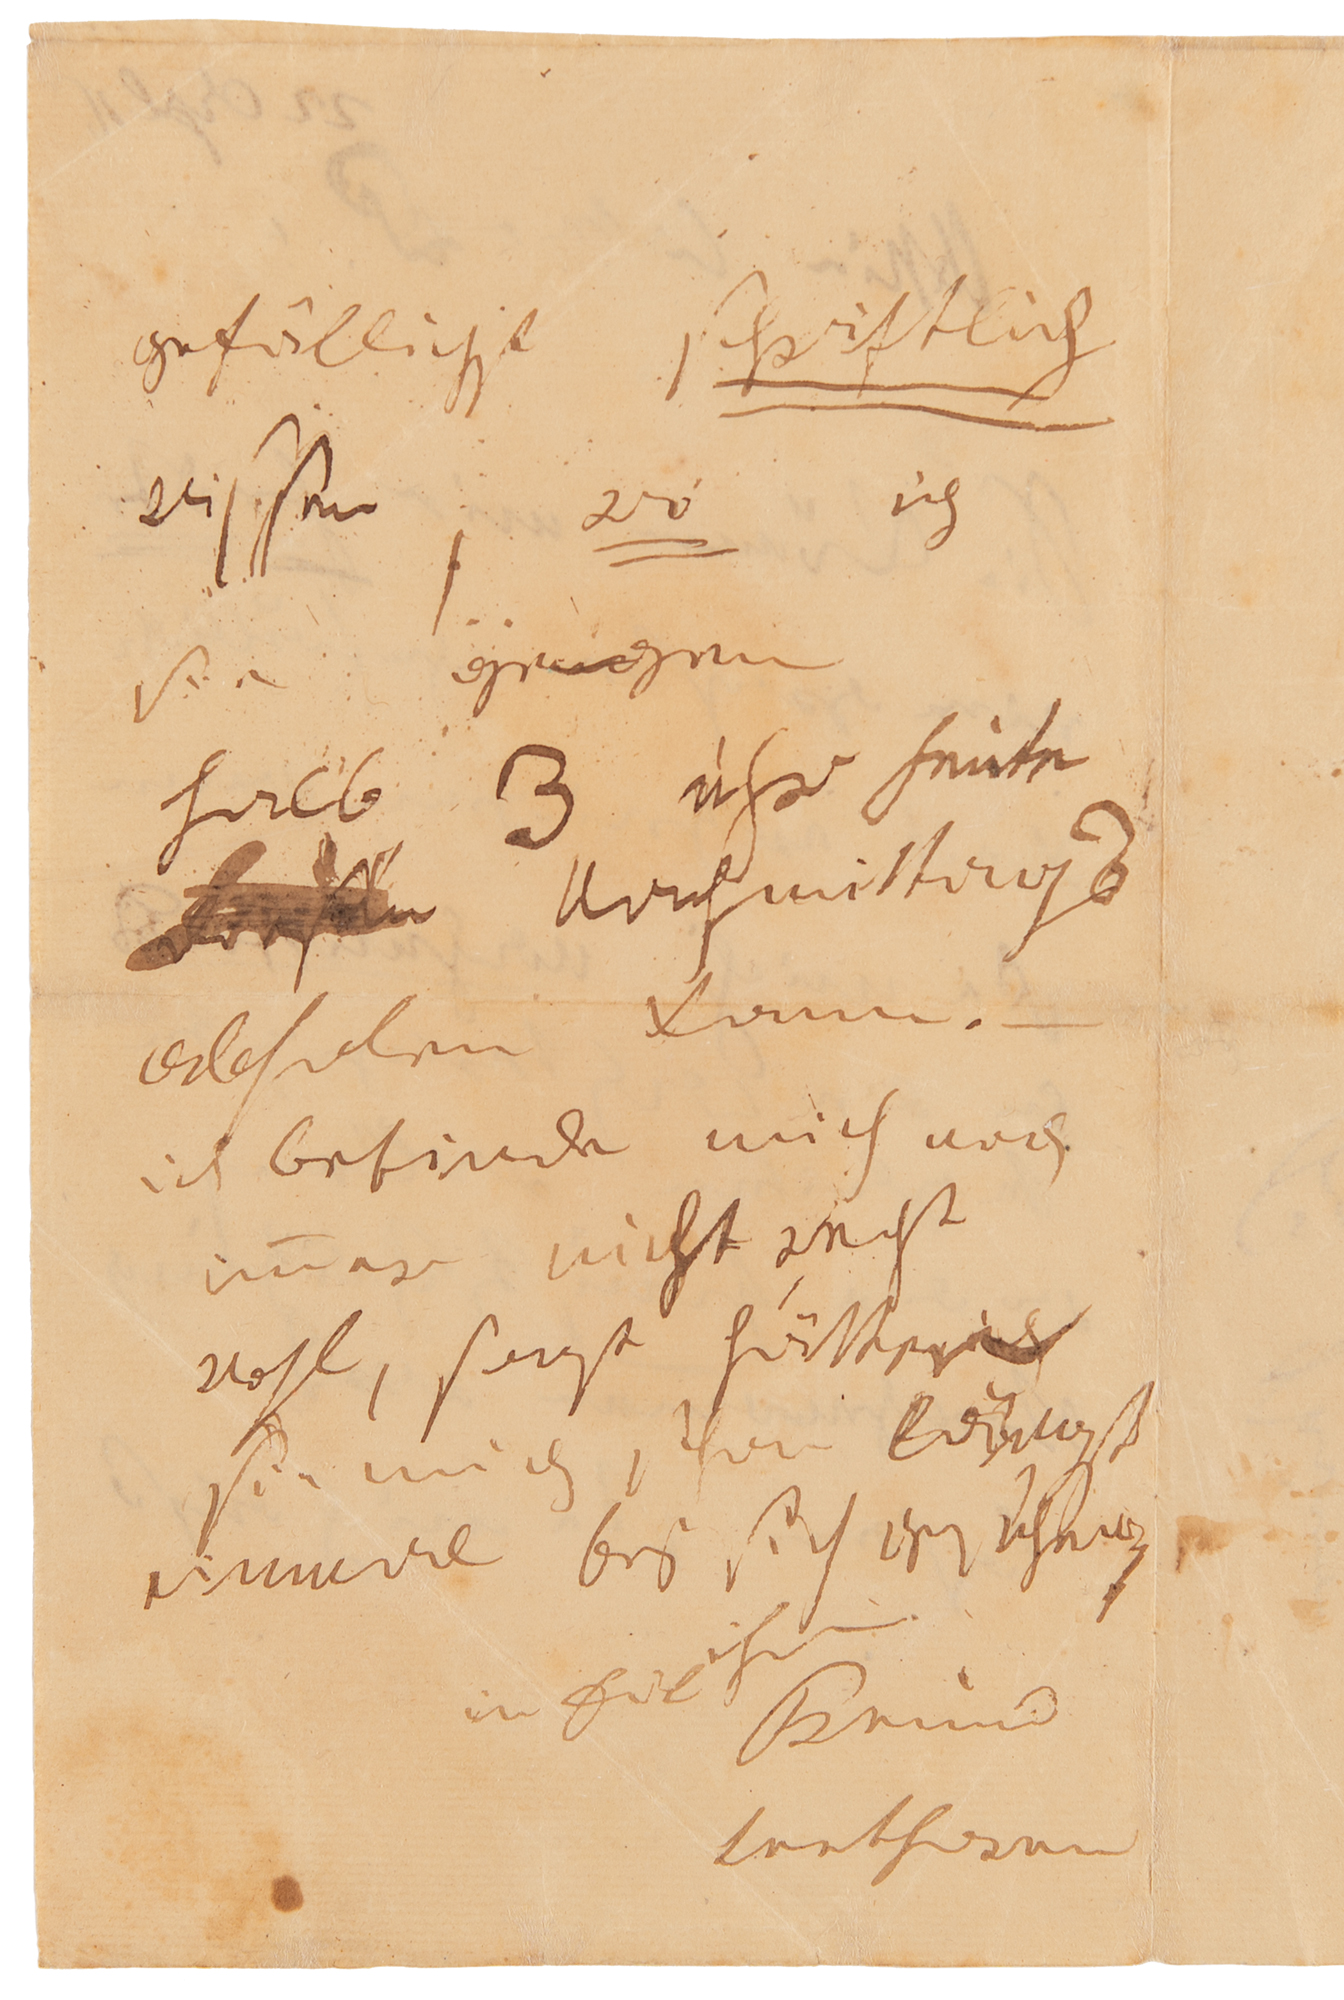 gefälligst schriftlich
wissen, wo ich
sie gegen
halb 3 uhr heute
Nachmittags
abholen kann. —
ich befinde mich noch
im̄er nicht recht
wohl, sonst hätte ich
sie mich schon längst
einmal bey sich
in Eil ihr
Freund
Beethowen